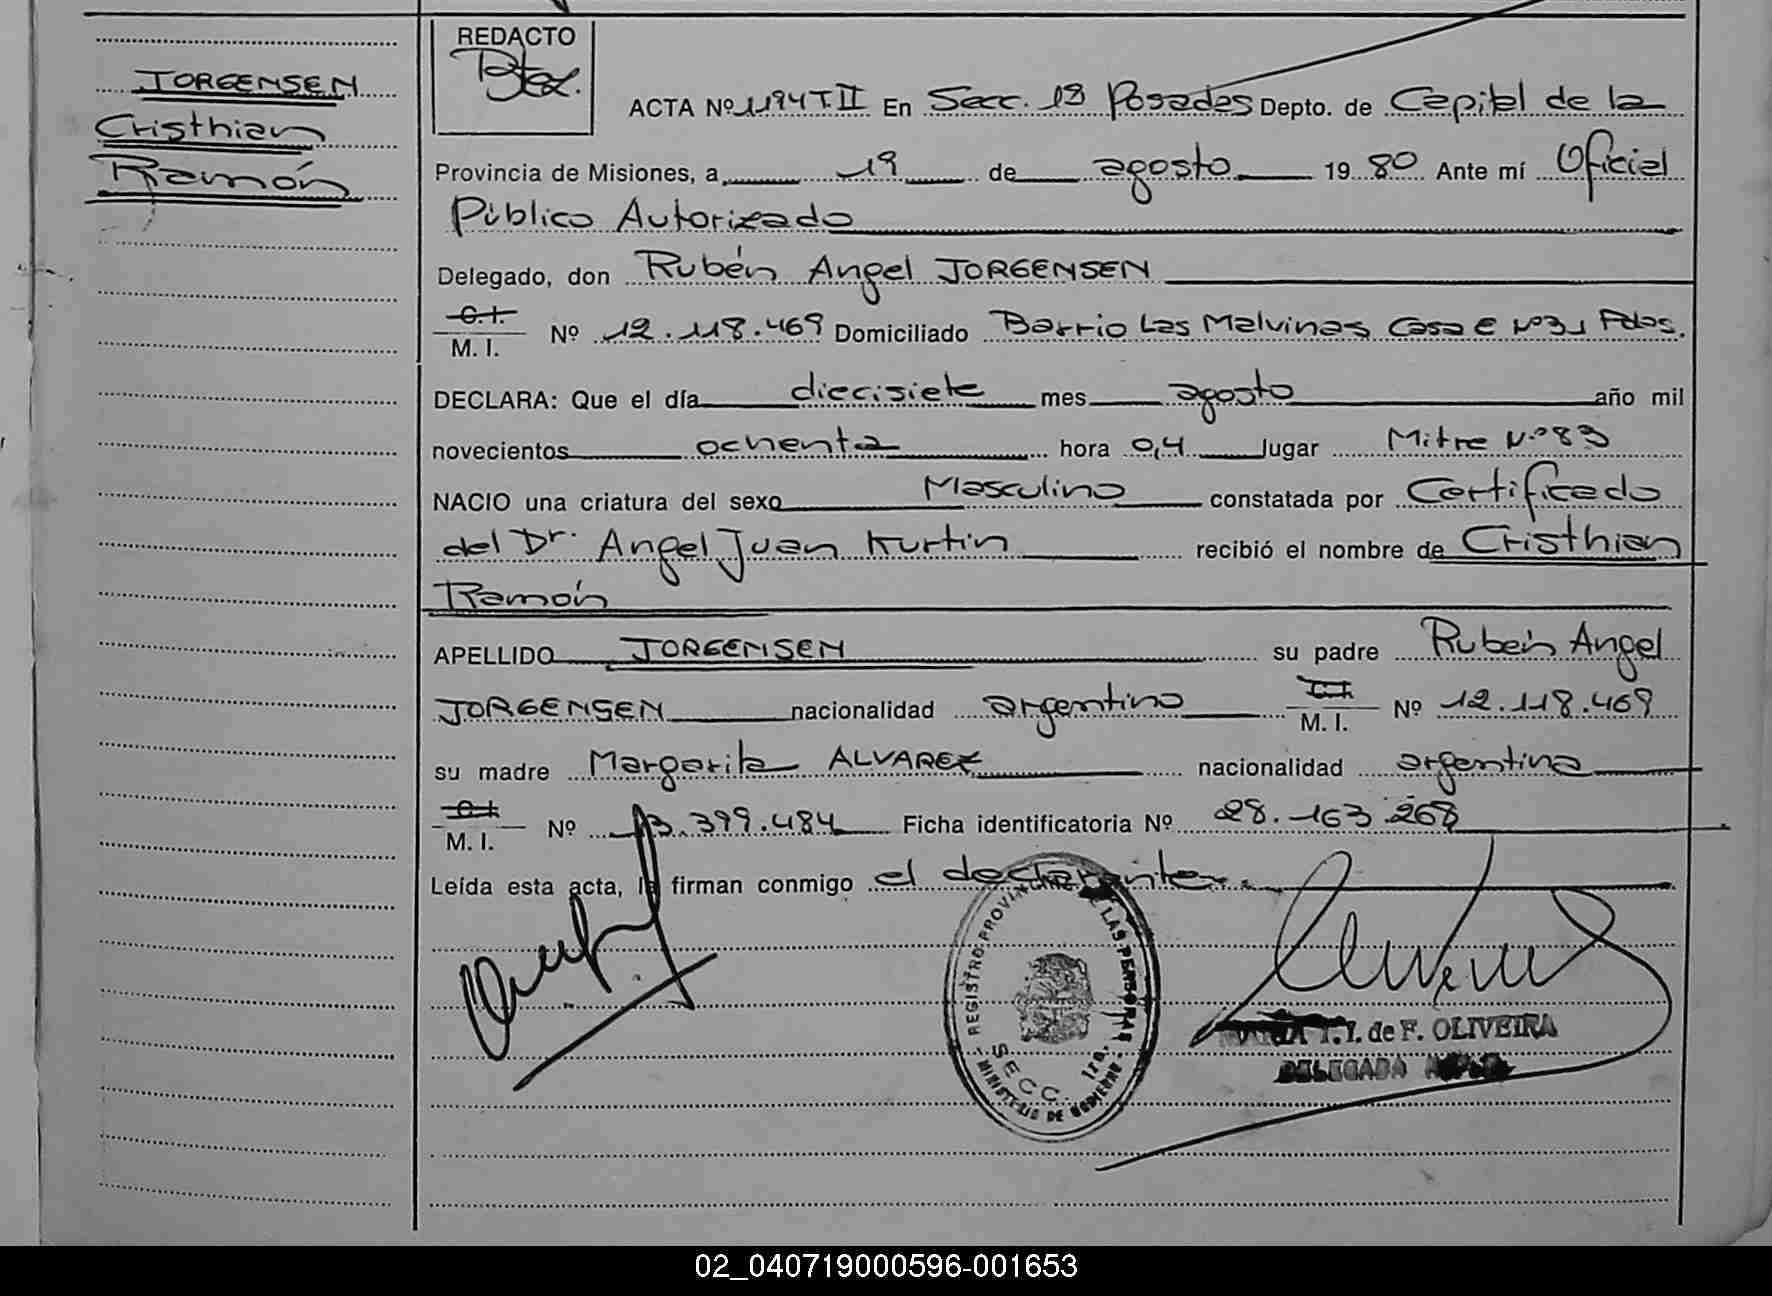 REDACTO
JORGENSEN
Cristhian
Ramón
ACTA Nº 1194 T. II En Secc. 1ª Posadas Depto. de Capital de la
Provincia de Misiones, a 19 de agosto 1980 Ante mí Oficial
Público Autorizado
Delegado, don Rubén Angel JORGENSEN
C.I.
M. I. Nº 12.118.469 Domiciliado Barrio Las Malvinas Casa E Nº31 Pdas.
DECLARA: Que el día diecisiete mes agosto año mil
novecientos ochenta hora 0,4 lugar Mitre Nº 83
NACIO una criatura del sexo Masculino constatada por Certificado
del Dr. Angel Juan Kurtin recibió el nombre de Cristhian
Ramón
APELLIDO JORGENSEN su padre Rubén Angel
JORGENSEN nacionalidad argentino M. I. Nº 12.118.469
su madre Margarita ALVAREZ nacionalidad argentina
C.I.
M. I. Nº 13.399.484 Ficha identificatoria Nº 28.163.268
Leída esta acta, la firman conmigo el declarante.
REGISTRO PROVINCIAL DE LAS PERSONAS
SECC. 1ra.
MINISTERIO DE GOBIERNO
T. I. de F. OLIVEIRA
DELEGADA
02_040719000596-001653